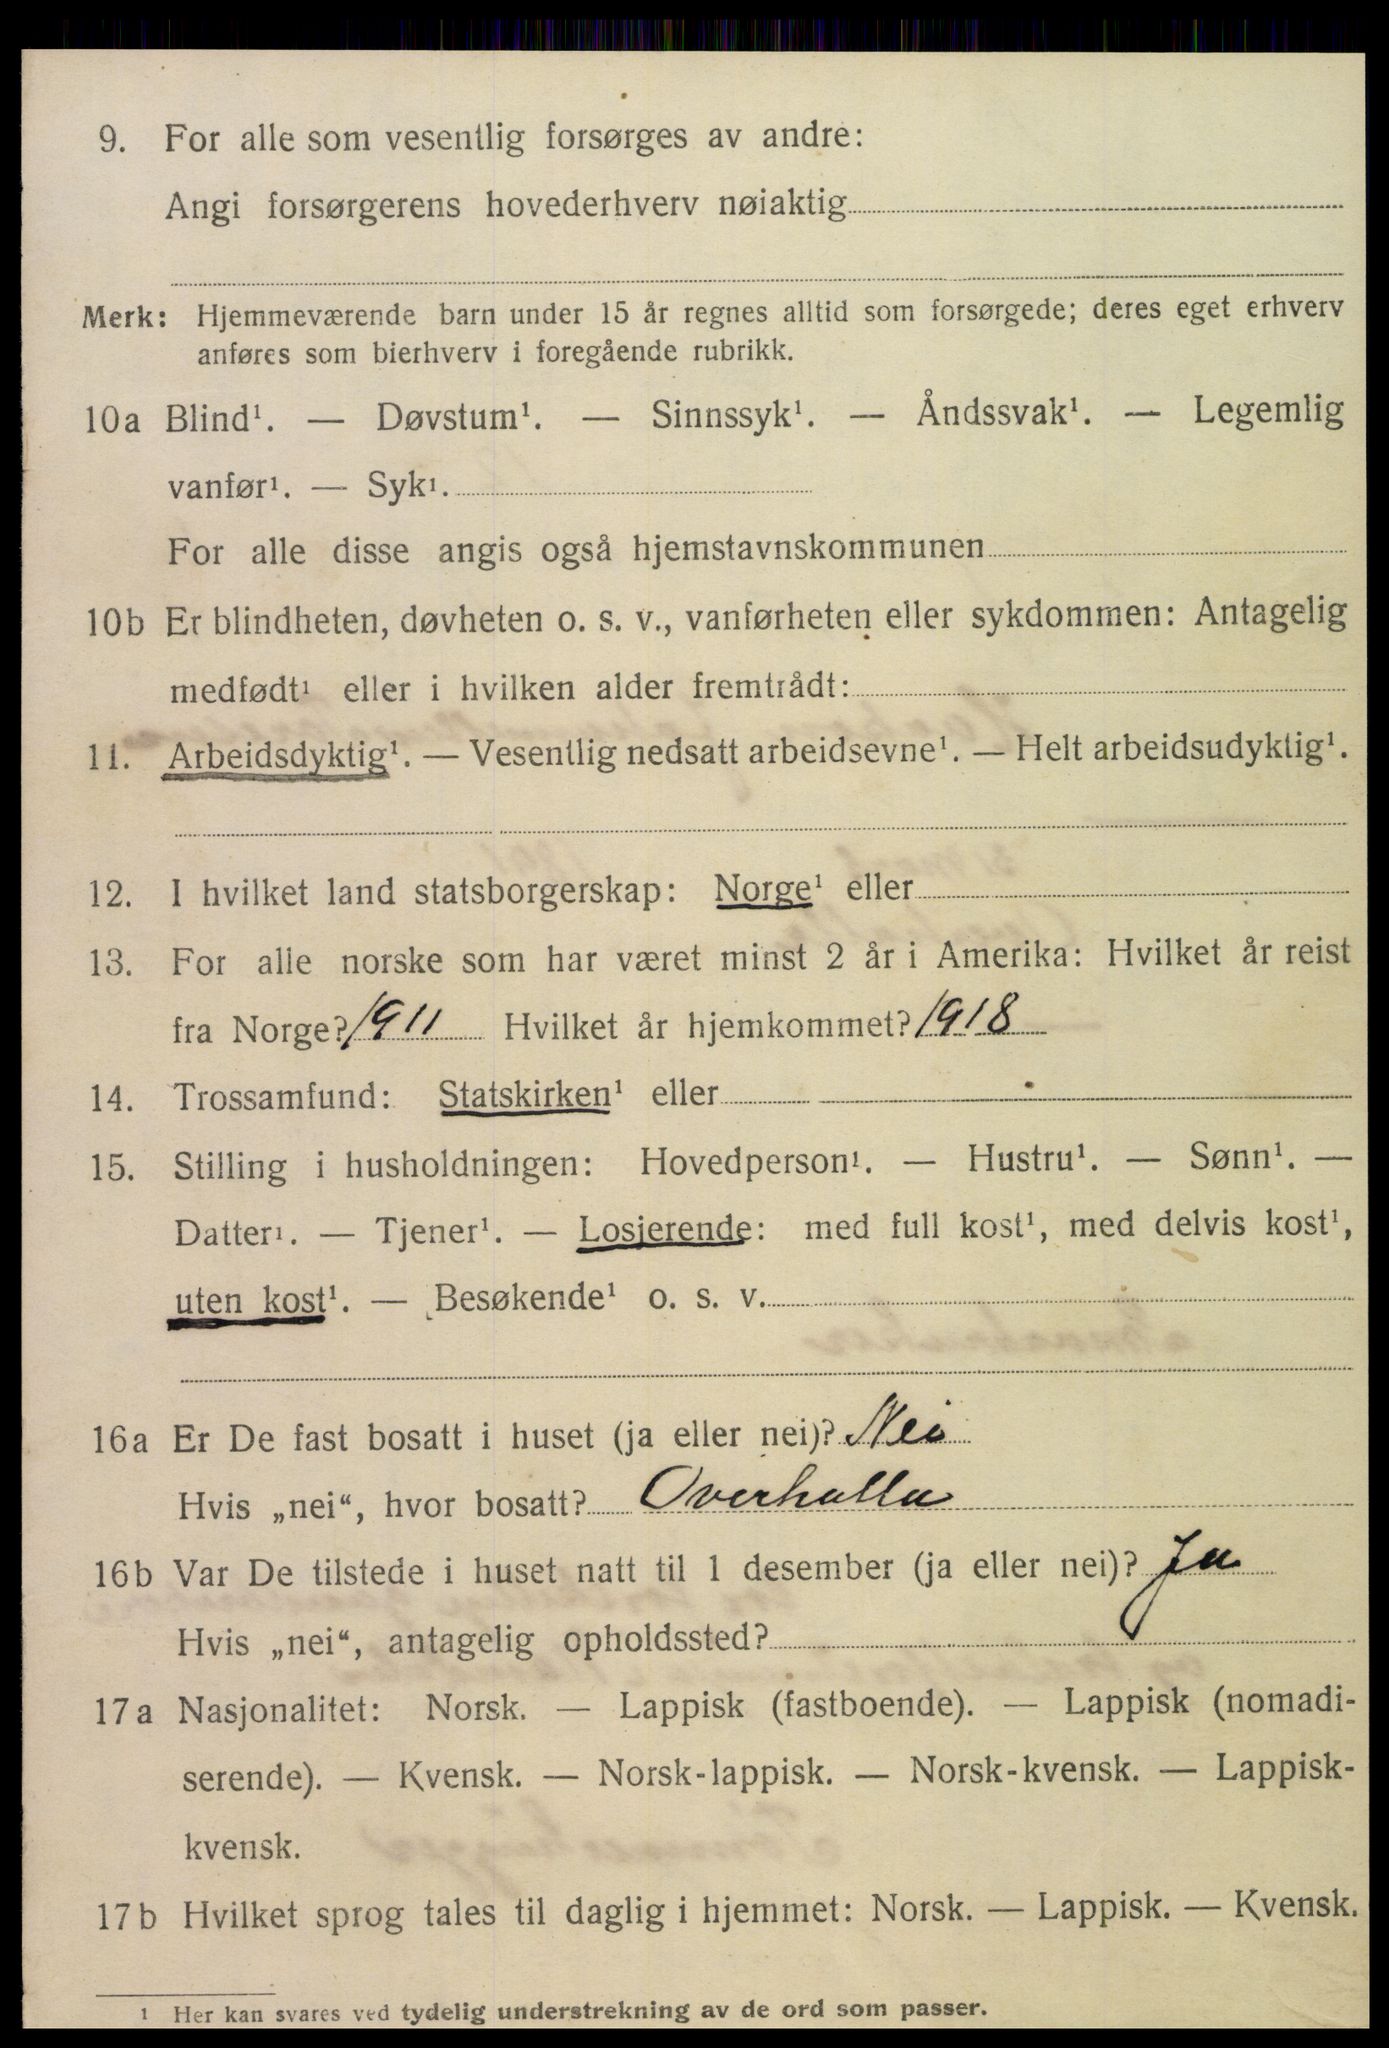 9. For alle som vesentlig forsørges av andre:
Angi forsørgerens hovederhverv nøiaktig
Merk: Hjemmeværende barn under 15 år regnes alltid som forsørgede; deres eget erhverv
anføres som bierhverv i foregående rubrikk.
10a Blind¹. — Døvstum¹. — Sinnssyk¹. — Åndssvak¹. — Legemlig
vanfør¹. — Syk¹.
For alle disse angis også hjemstavnskommunen
10b Er blindheten, døvheten o. s. v., vanførheten eller sykdommen: Antagelig
medfødt¹ eller i hvilken alder fremtrådt:
11. Arbeidsdyktig¹. — Vesentlig nedsatt arbeidsevne¹. — Helt arbeidsudyktig¹.
12. I hvilket land statsborgerskap: Norge¹ eller
13. For alle norske som har været minst 2 år i Amerika: Hvilket år reist
fra Norge? 1911 Hvilket år hjemkommet? 1918
14. Trossamfund: Statskirken¹ eller
15. Stilling i husholdningen: Hovedperson¹. — Hustru¹. — Sønn¹. —
Datter¹. — Tjener¹. — Losjerende: med full kost¹, med delvis kost¹,
uten kost¹. — Besøkende¹ o. s. v.
16a Er De fast bosatt i huset (ja eller nei)? Nei
Hvis „nei“, hvor bosatt? Overhalla
16b Var De tilstede i huset natt til 1 desember (ja eller nei)? Ja
Hvis „nei“, antagelig opholdssted?
17a Nasjonalitet: Norsk. — Lappisk (fastboende). — Lappisk (nomadi-
serende). — Kvensk. — Norsk-lappisk. — Norsk-kvensk. — Lappisk-
kvensk.
17b Hvilket sprog tales til daglig i hjemmet: Norsk. — Lappisk. — Kvensk.
¹ Her kan svares ved tydelig understrekning av de ord som passer.